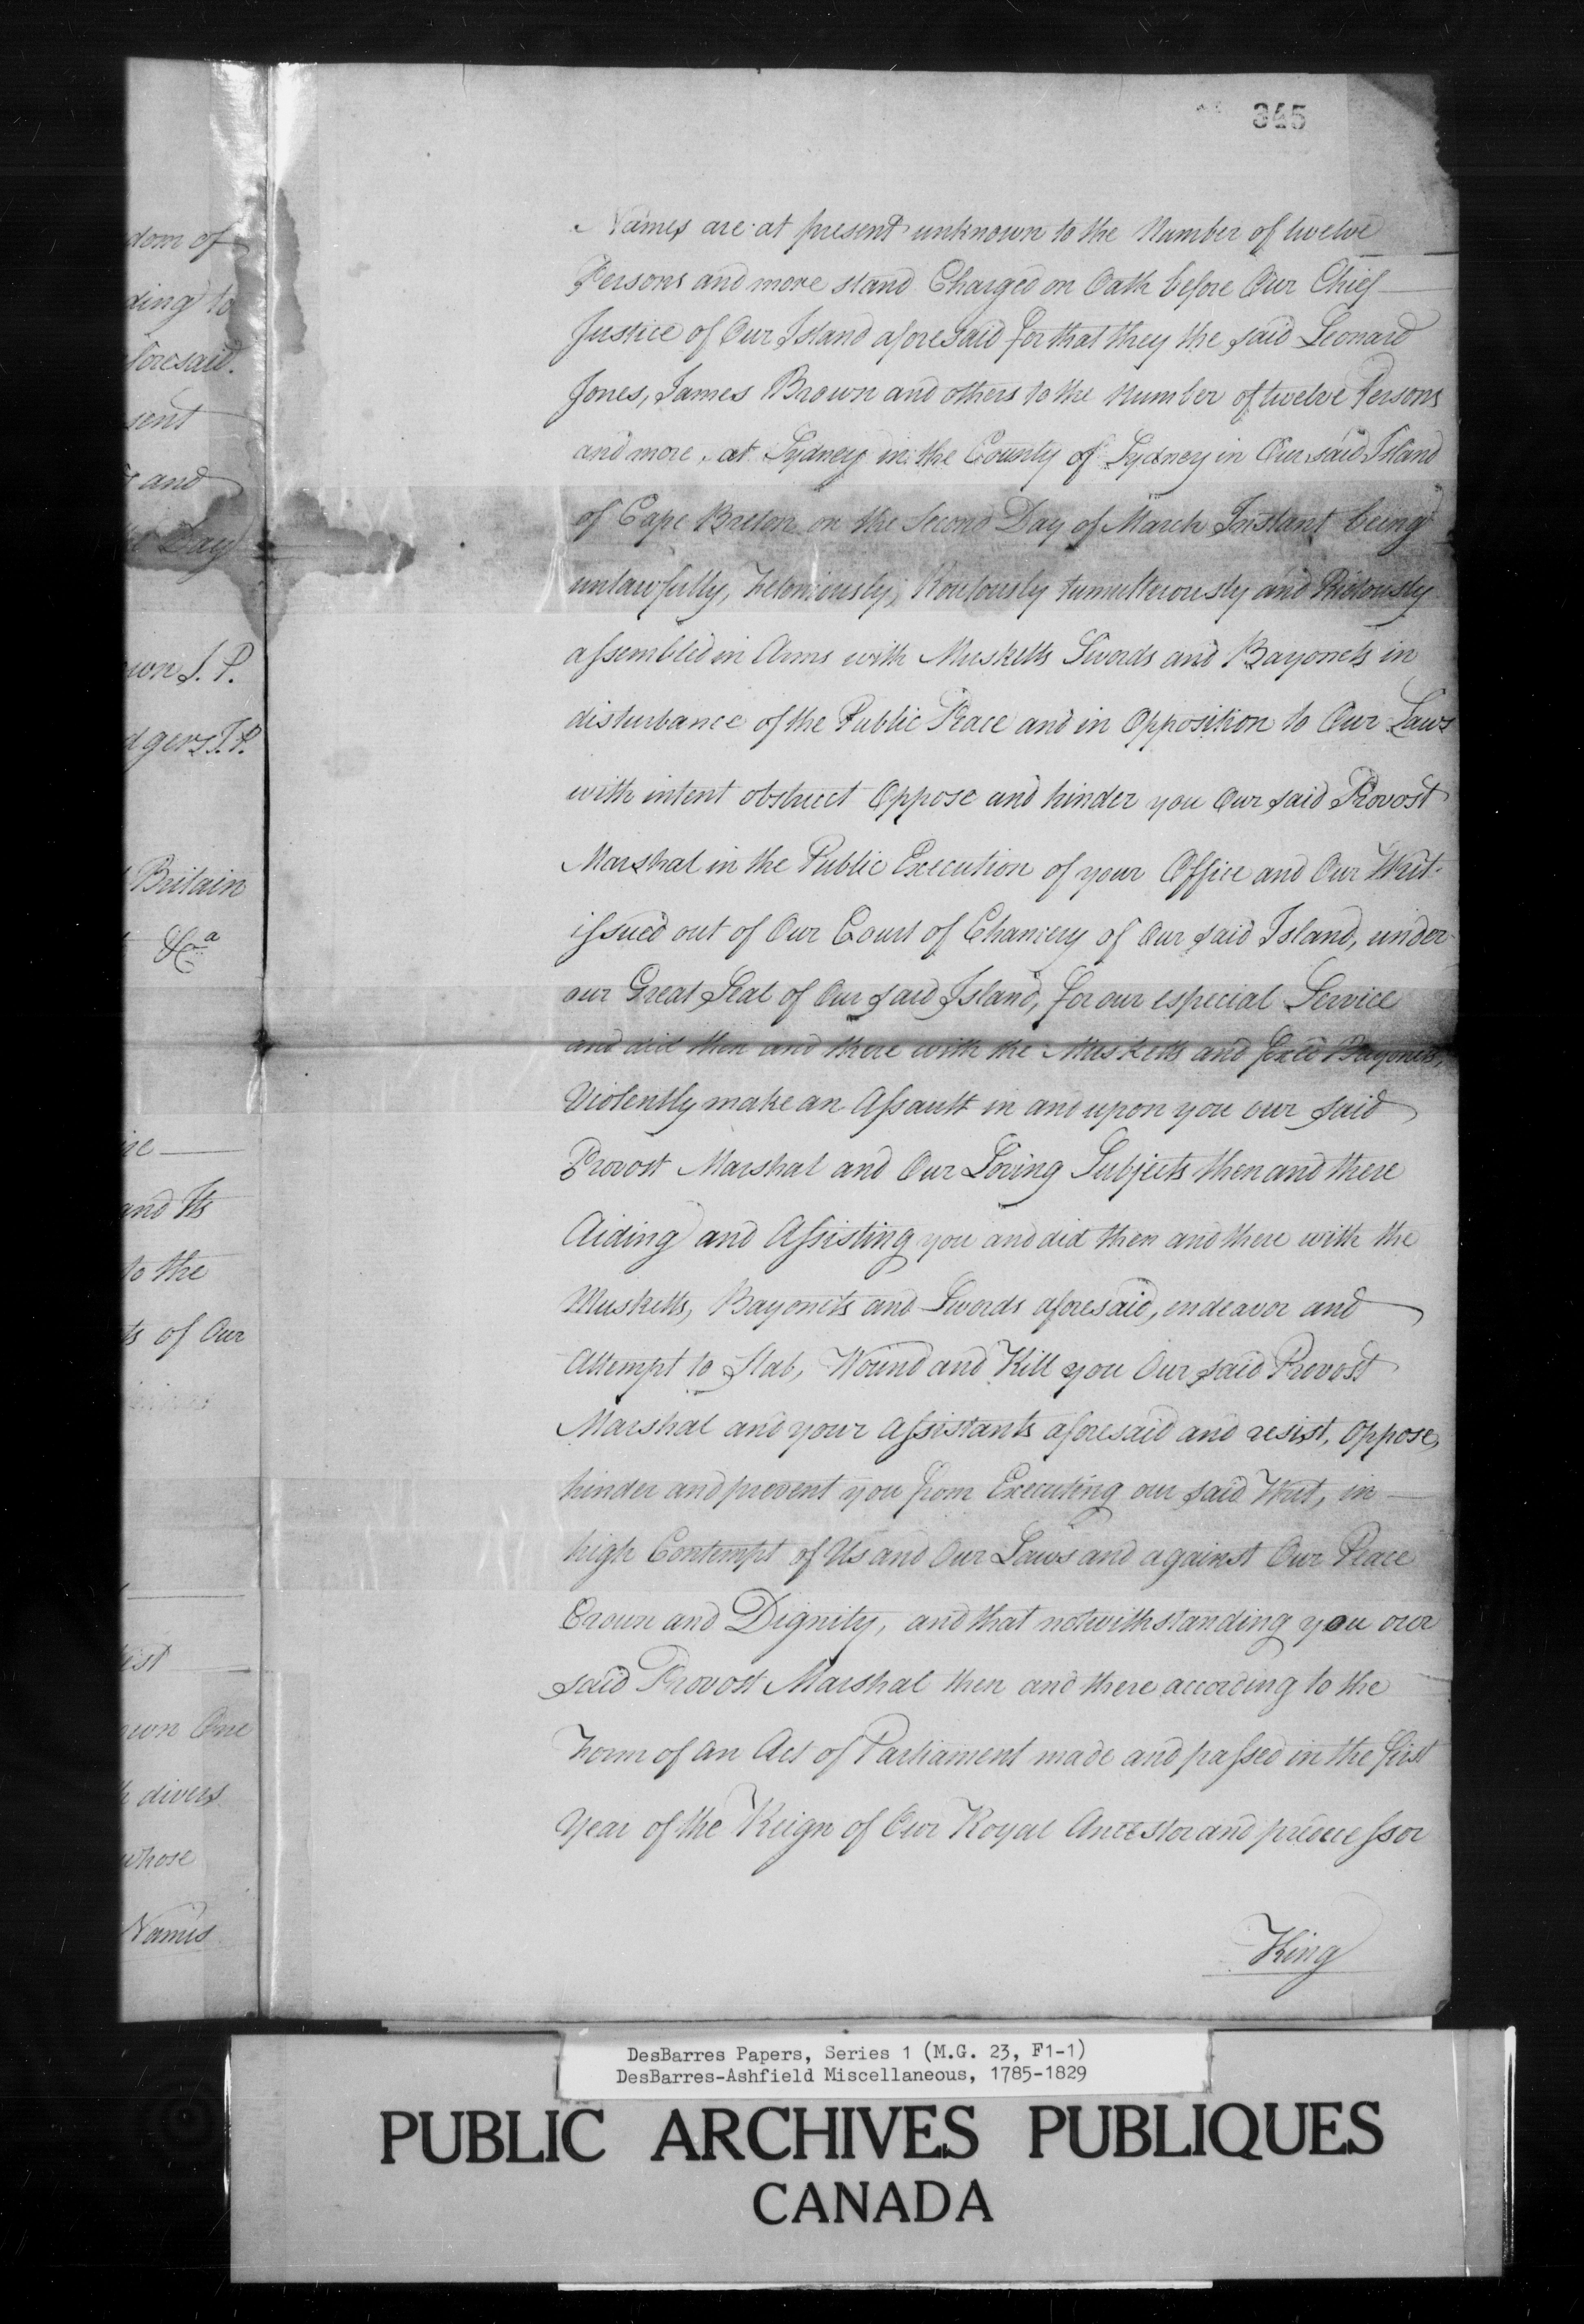 345
Names are at present unknown to the Number of twelve
Persons and more stand Charged on Oath before Our Chief
Justice of Our Island aforesaid for that they the said Leonard
Jones, James Brown and others to the number of twelve Persons
and more, at Sydney in the County of Sydney in Our said Island
of Cape Breton on the Second Day of March Instant being
unlawfully, Feloniously, Routously tumultuously and Riotously
assembled in Arms with Musketts Swords and Bayonets in
disturbance of the Public Peace and in Opposition to Our Laws
with intent obstruct Oppose and hinder you Our said Provost
Marshal in the Public Execution of your Office and Our Writ
issued out of Our Court of Chancery of Our said Island, under
our Great Seal of Our said Island, for our especial Service
and did then and there with the Musketts and fixed Bayonets,
Violently make an Assault in and upon you our said
Provost Marshal and Our Loving Subjects then and there
Aiding and Assisting you and did then and there with the
Musketts, Bayonets and Swords aforesaid, endeavor and
Attempt to Stab, Wound and Kill you Our said Provost
Marshal and your Assistants aforesaid and resist, oppose,
hinder and prevent you from Executing our said Writ, in
high Contempt of Us and Our Laws and against Our Peace
Crown and Dignity, and that notwithstanding you our
said Provost Marshal then and there according to the
Form of an Act of Parliament made and passed in the first
Year of the Reign of Our Royal Ancestor and predecessor
King
dom of
ding to
foresaid.
sent
and
Day
own J. P.
dgers J. P.
Britain
&c.a
and Its
to the
ts of Our
own One
divers
whose
Names
DesBarres Papers, Series 1 (M.G. 23, F1-1)
DesBarres-Ashfield Miscellaneous, 1785-1829
PUBLIC ARCHIVES PUBLIQUES
CANADA